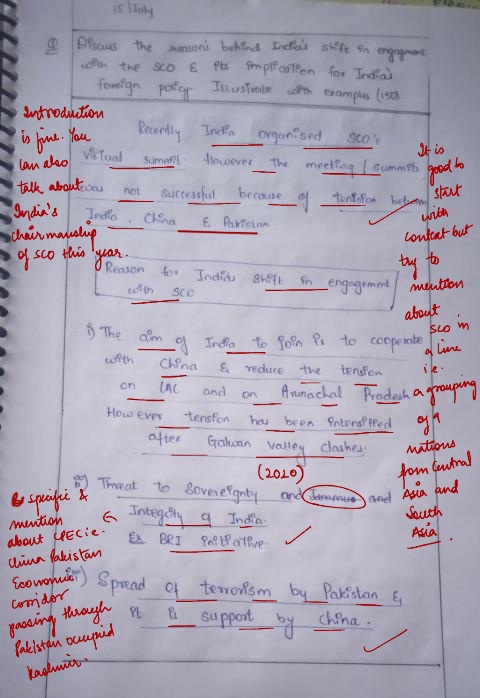 15/July
Q Discuss the reasons behind India's shift in engagment
with the SCO & its implication for India's
foreign policy. Illustrate with examples (150)
Introduction
is fine. You
can also
talk about
India's
chairmanship
of SCO this year.
Recently India organised SCO's
virtual summit. However the meeting / summit
was not successful because of tension between
India, China & Pakistan.
It is
good to
start
with
context but
try to
mention
about
SCO in
a line
i.e.
a grouping
of 9
nations
from Central
Asia and
South
Asia.
Reason for India's shift in engagement
with SCO
i) The aim of India to join is to cooperate
with China & reduce the tension
on LAC and on Arunachal Pradesh
However tension has been intensified
after Galwan valley clashes.
(2020)
ii) Threat to Sovereignty and and
Integrity of India.
Ex BRI initiative.
Be specific &
mention
about CPEC i.e.
China Pakistan
Economic
corridor
passing through
Pakistan occupied
Kashmir.
iii) Spread of terrorism by Pakistan &
it is support by China.